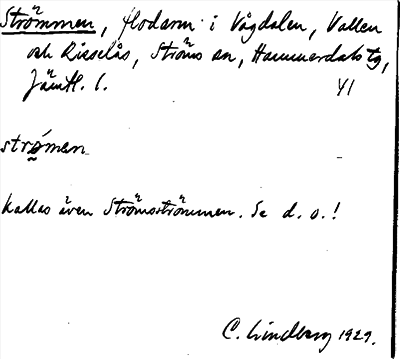 Strömmen, flodarm i Vågdalen, Vallen
och Risselås, Ströms sn, Hammerdals tg,
Jämtl. l.
41
strømen
kallas även Strömsströmmen. Se d. o.!
C. Lindberg 1929.